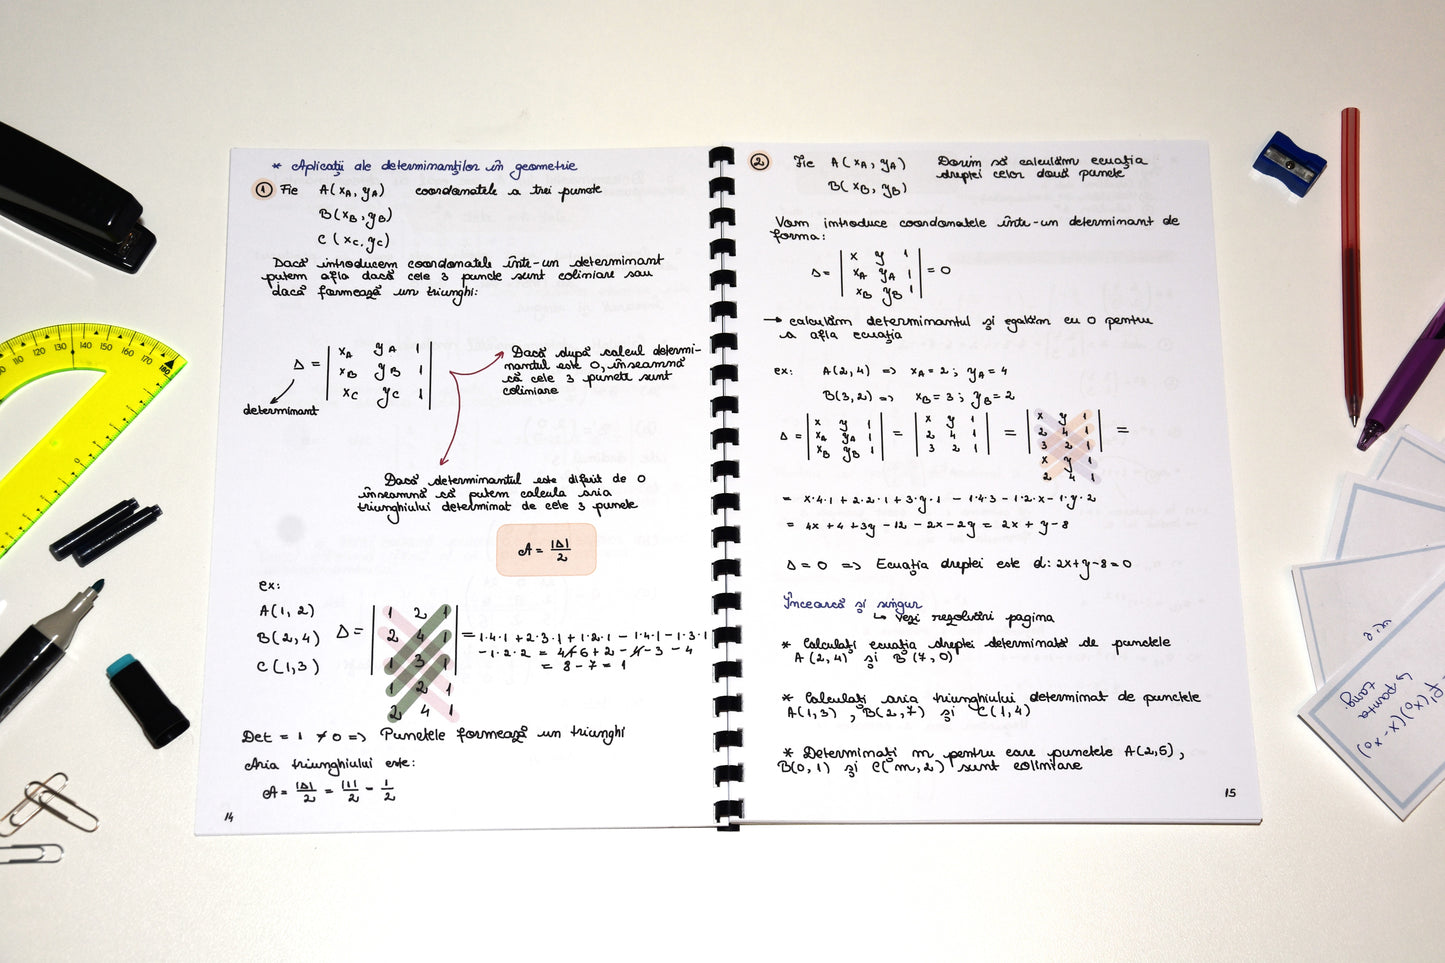 * Aplicații ale determinanților în geometrie
1 Fie A(xA, yA) coordonatele a trei puncte
B(xB, yB)
C(xC, yC)
Dacă introducem coordonatele într-un determinant
putem afla dacă cele 3 puncte sunt coliniare sau
dacă formează un triunghi:
Δ = | xA yA 1 |
| xB yB 1 |
| xC yC 1 |
determinant
Dacă după calcul determi-
nantul este 0, înseamnă
că cele 3 puncte sunt
coliniare
Dacă determinantul este diferit de 0
înseamnă că putem calcula aria
triunghiului determinat de cele 3 puncte
A = |Δ|/2
ex:
A(1, 2)
B(2, 4)
C(1, 3)
Δ = | 1 2 1 |
| 2 4 1 |
| 1 3 1 |
1 2 1
2 4 1
= 1·4·1 + 2·3·1 + 1·2·1 - 1·4·1 - 1·3·1
- 1·2·2 = 4 + 6 + 2 - 4 - 3 - 4
= 8 - 7 = 1
Det = 1 ≠ 0 => Punctele formează un triunghi
Aria triunghiului este:
A = |Δ|/2 = |1|/2 = 1/2
14
2 Fie A(xA, yA) Dorim să calculăm ecuația
dreptei celor două puncte
B(xB, yB)
Vom introduce coordonatele într-un determinant de
forma:
Δ = | x y 1 |
| xA yA 1 | = 0
| xB yB 1 |
→ calculăm determinantul și egalăm cu 0 pentru
a afla ecuația
ex: A(2, 4) => xA = 2 ; yA = 4
B(3, 2) => xB = 3 ; yB = 2
Δ = | x y 1 | = | x y 1 | = | x y 1 | =
| xA yA 1 | | 2 4 1 | | 2 4 1 |
| xB yB 1 | | 3 2 1 | | 3 2 1 |
x y 1
2 4 1
= x·4·1 + 2·2·1 + 3·y·1 - 1·4·3 - 1·2·x - 1·y·2
= 4x + 4 + 3y - 12 - 2x - 2y = 2x + y - 8
Δ = 0 => Ecuația dreptei este d: 2x + y - 8 = 0
Încearcă și singur
↳ Vezi rezolvări pagina
* Calculați ecuația dreptei determinată de punctele
A(2, 4) și B(7, 0)
* Calculați aria triunghiului determinat de punctele
A(1, 3) , B(2, 7) și C(1, 4)
* Determinați m pentru care punctele A(2,5) ,
B(0, 1) și C(m, 2) sunt coliniare
15
110 120 130 140 150 160 170 180
0
f'(x0)(x-x0)
↳ panta
tang.